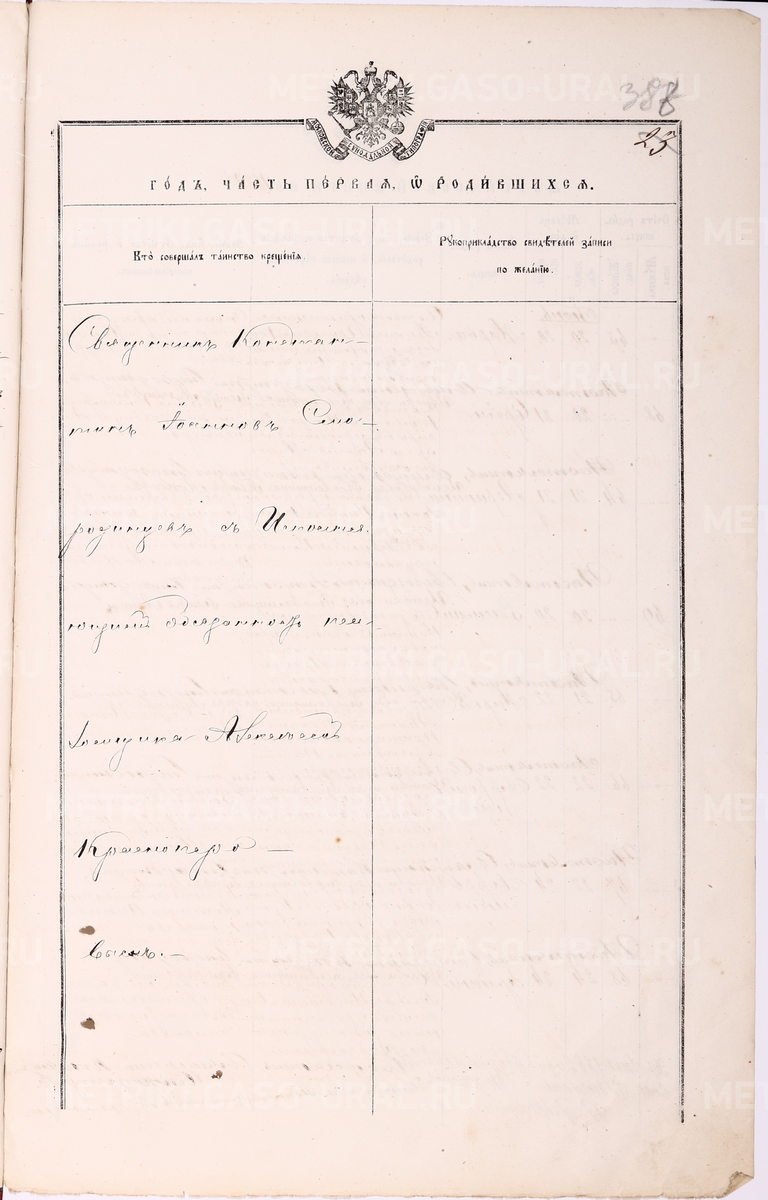 388
23
годъ, часть первая, ѿ родившихся.
Кто совершалъ таинство крещенія.
Рукоприкладство свидѣтелей записи
по желанію.
Священникъ Констан-
тинъ Іоанновъ Смо-
родинцовъ съ Исполня-
ющимъ обязанность пса-
ломщика Алексѣемъ
Краснопёро-
вымъ.-
METRIKI.GASO-URAL.RU